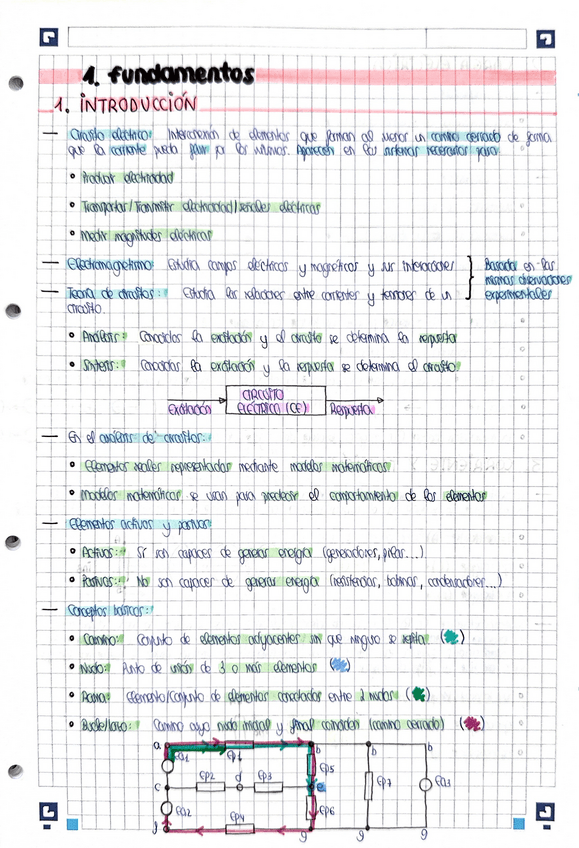 1. fundamentos
1. INTRODUCCIÓN
— Circuito eléctrico: Interconexión de elementos que forman al menos un camino cerrado de forma
que la corriente pueda fluir por los mismos. Aparecen en los sistemas necesarios para:
• Producir electricidad
• Transportar/Transmitir electricidad/señales eléctricas
• Medir magnitudes eléctricas
— Electromagnetismo: Estudia campos eléctricos y magnéticos y sus interacciones
— Teoría de circuitos: Estudia las relaciones entre corrientes y tensiones de un
circuito.
Basados en las
mismas observaciones
experimentales
• Análisis: Conocidos la excitación y el circuito se determina la respuesta
• Síntesis: Conocidas la excitación y la respuesta se determina el circuito
Excitación
CIRCUITO
ELÉCTRICO (CE)
Respuesta
— En el análisis de circuitos:
• Elementos reales representados mediante modelos matemáticos
• Modelos matemáticos se usan para predecir el comportamiento de los elementos
— Elementos activos y pasivos
• Activos: Sí son capaces de generar energía (generadores, pilas...)
• Pasivos: No son capaces de generar energía (resistencias, bobinas, condensadores...)
— Conceptos básicos:
• Camino: Conjunto de elementos adyacentes sin que ninguno se repita ( )
• Nudo: Punto de unión de 3 o más elementos ( )
• Rama: Elemento/Conjunto de elementos conectados entre 2 nudos ( )
• Bucle/lazo: Camino cuyo nudo inicial y final coinciden (camino cerrado) ( )
a Ep1 b b
Ea1 Ep5
c Ep2 d Ep3 e Ep7 Ea3
Ea2 Ep6
f Ep4 g g g